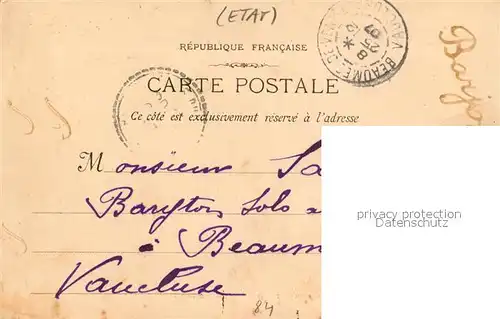 (ETAT)
RÉPUBLIQUE FRANÇAISE
CARTE POSTALE
Ce côté est exclusivement réservé à l'adresse
Monsieur Sa
Baryton Solo a
à Beaum
Vaucluse
84
privacy protection
Datenschutz